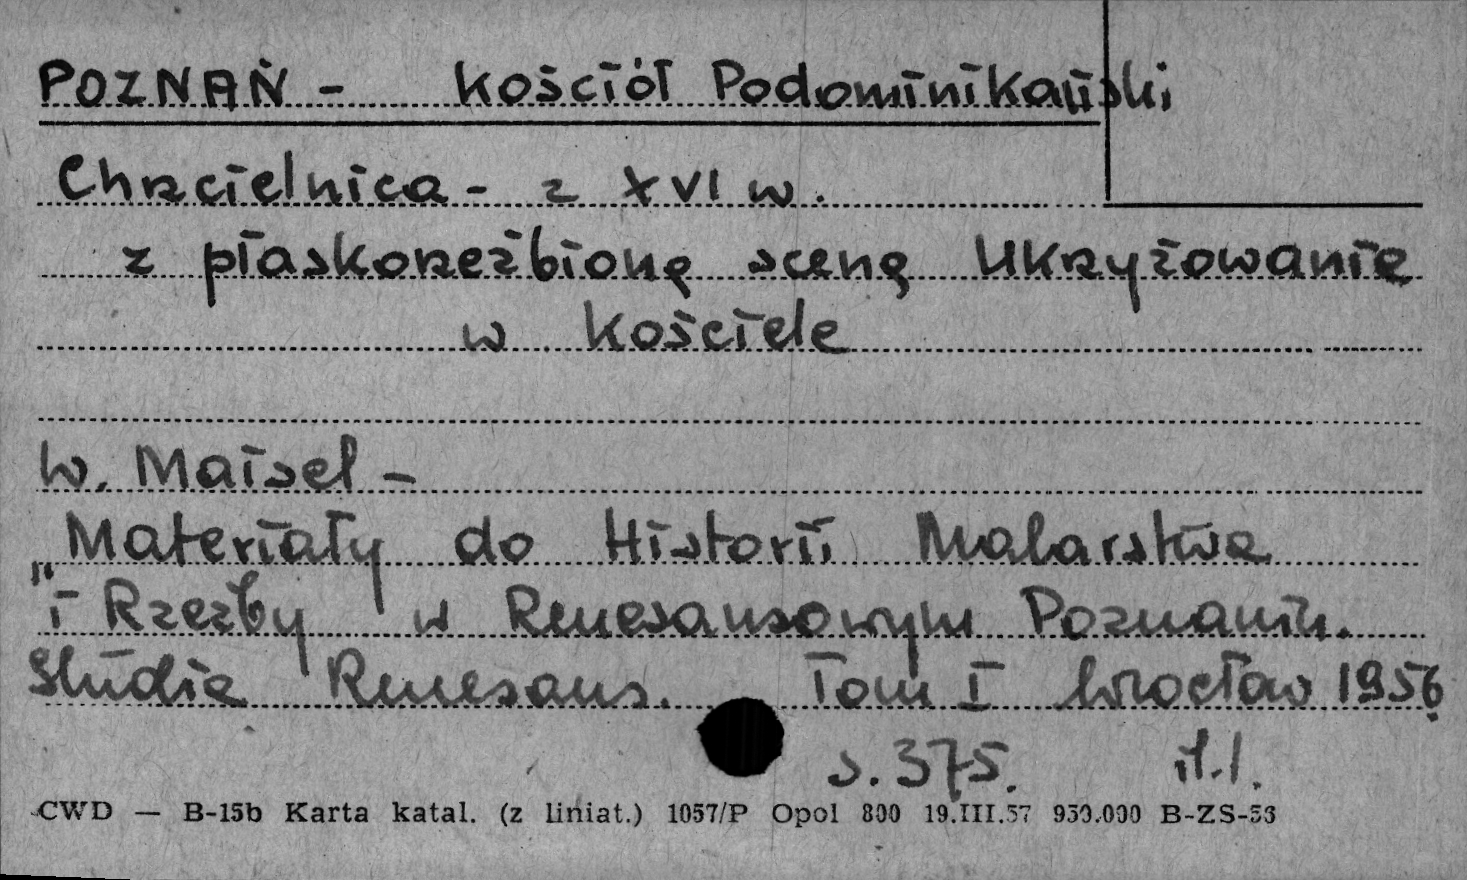 POZNAŃ - Kościół Podominikański
Chrzcielnica - z XVI w.
z płaskorzeźbioną sceną Ukrzyżowania
w kościele
W. Maisel -
"Materiały do Historii Malarstwa
i Rzeźby w Renesansowym Poznaniu.
Studia Renesans. Tom I Wrocław 1956
s. 375. il. 1.
CWD — B-15b Karta katal. (z liniat.) 1057/P Opol 800 19.III.57 950.000 B-ZS-53